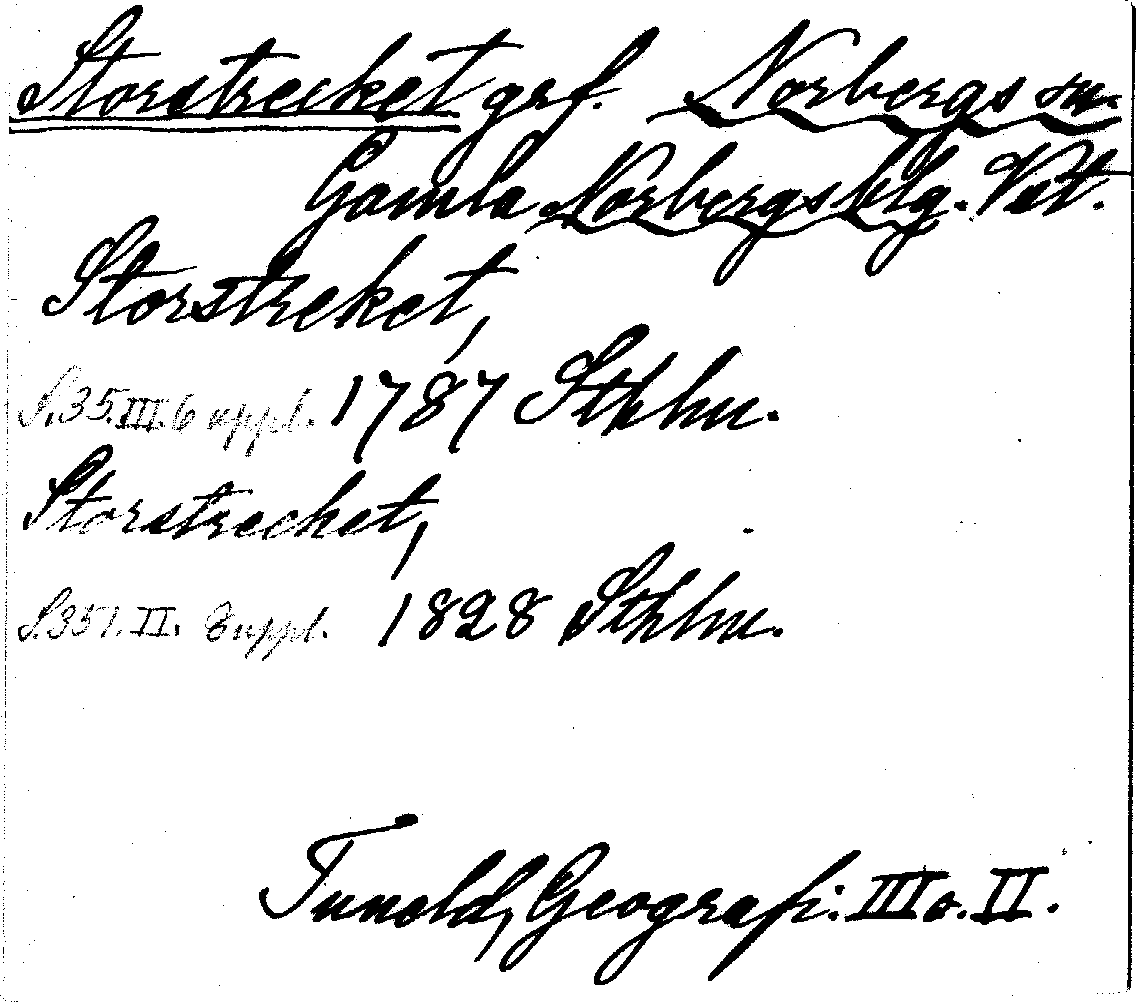 Storstrecket grf. Norbergs sn.
Gamla Norbergs blg. Vst.
Storstreket,
S. 35. III. 6 uppl. 1787 Sthlm.
Storstrecket,
S. 351. II. 8 uppl. 1828 Sthlm.
Tuneld, Geografi. III o. II.